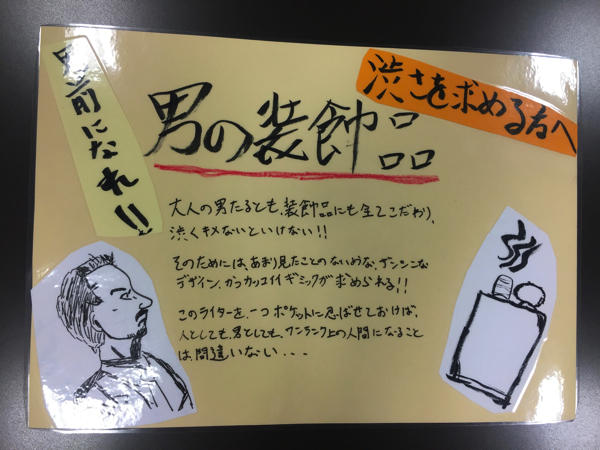 男前になれ!!
渋さを求める方へ
男の装飾品
大人の男たるとも、装飾品にも全てこだわり、
渋くキメないといけない!!
そのためには、あまり見たことのないような、ザンシンな
デザイン、かつカッコイイギミックが求められる!!
このライターを、一つポケットに忍ばせておけば、
人としても、男としても、ワンランク上の人間になること
は、間違いない...